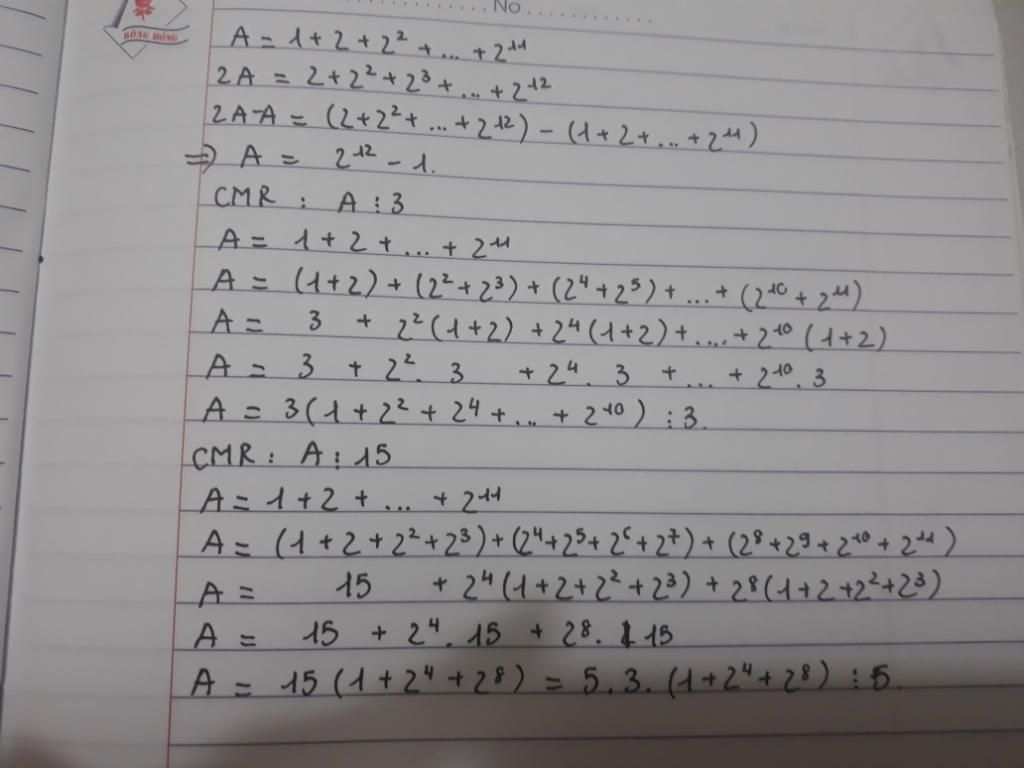 No
BÔNG HỒNG
A = 1 + 2 + 2² + ... + 2¹¹
2A = 2 + 2² + 2³ + ... + 2¹²
2A-A = (2 + 2² + ... + 2¹²) - (1 + 2 + ... + 2¹¹)
=> A = 2¹² - 1.
CMR : A ⋮ 3
A = 1 + 2 + ... + 2¹¹
A = (1+2) + (2² + 2³) + (2⁴ + 2⁵) + ... + (2¹⁰ + 2¹¹)
A = 3 + 2²(1+2) + 2⁴(1+2) + .... + 2¹⁰(1+2)
A = 3 + 2². 3 + 2⁴. 3 + ... + 2¹⁰. 3
A = 3(1 + 2² + 2⁴ + ... + 2¹⁰) ⋮ 3.
CMR : A ⋮ 15
A = 1 + 2 + ... + 2¹¹
A = (1 + 2 + 2² + 2³) + (2⁴ + 2⁵ + 2⁶ + 2⁷) + (2⁸ + 2⁹ + 2¹⁰ + 2¹¹)
A = 15 + 2⁴(1 + 2 + 2² + 2³) + 2⁸(1 + 2 + 2² + 2³)
A = 15 + 2⁴. 15 + 2⁸. 15
A = 15(1 + 2⁴ + 2⁸) = 5.3.(1 + 2⁴ + 2⁸) ⋮ 5.